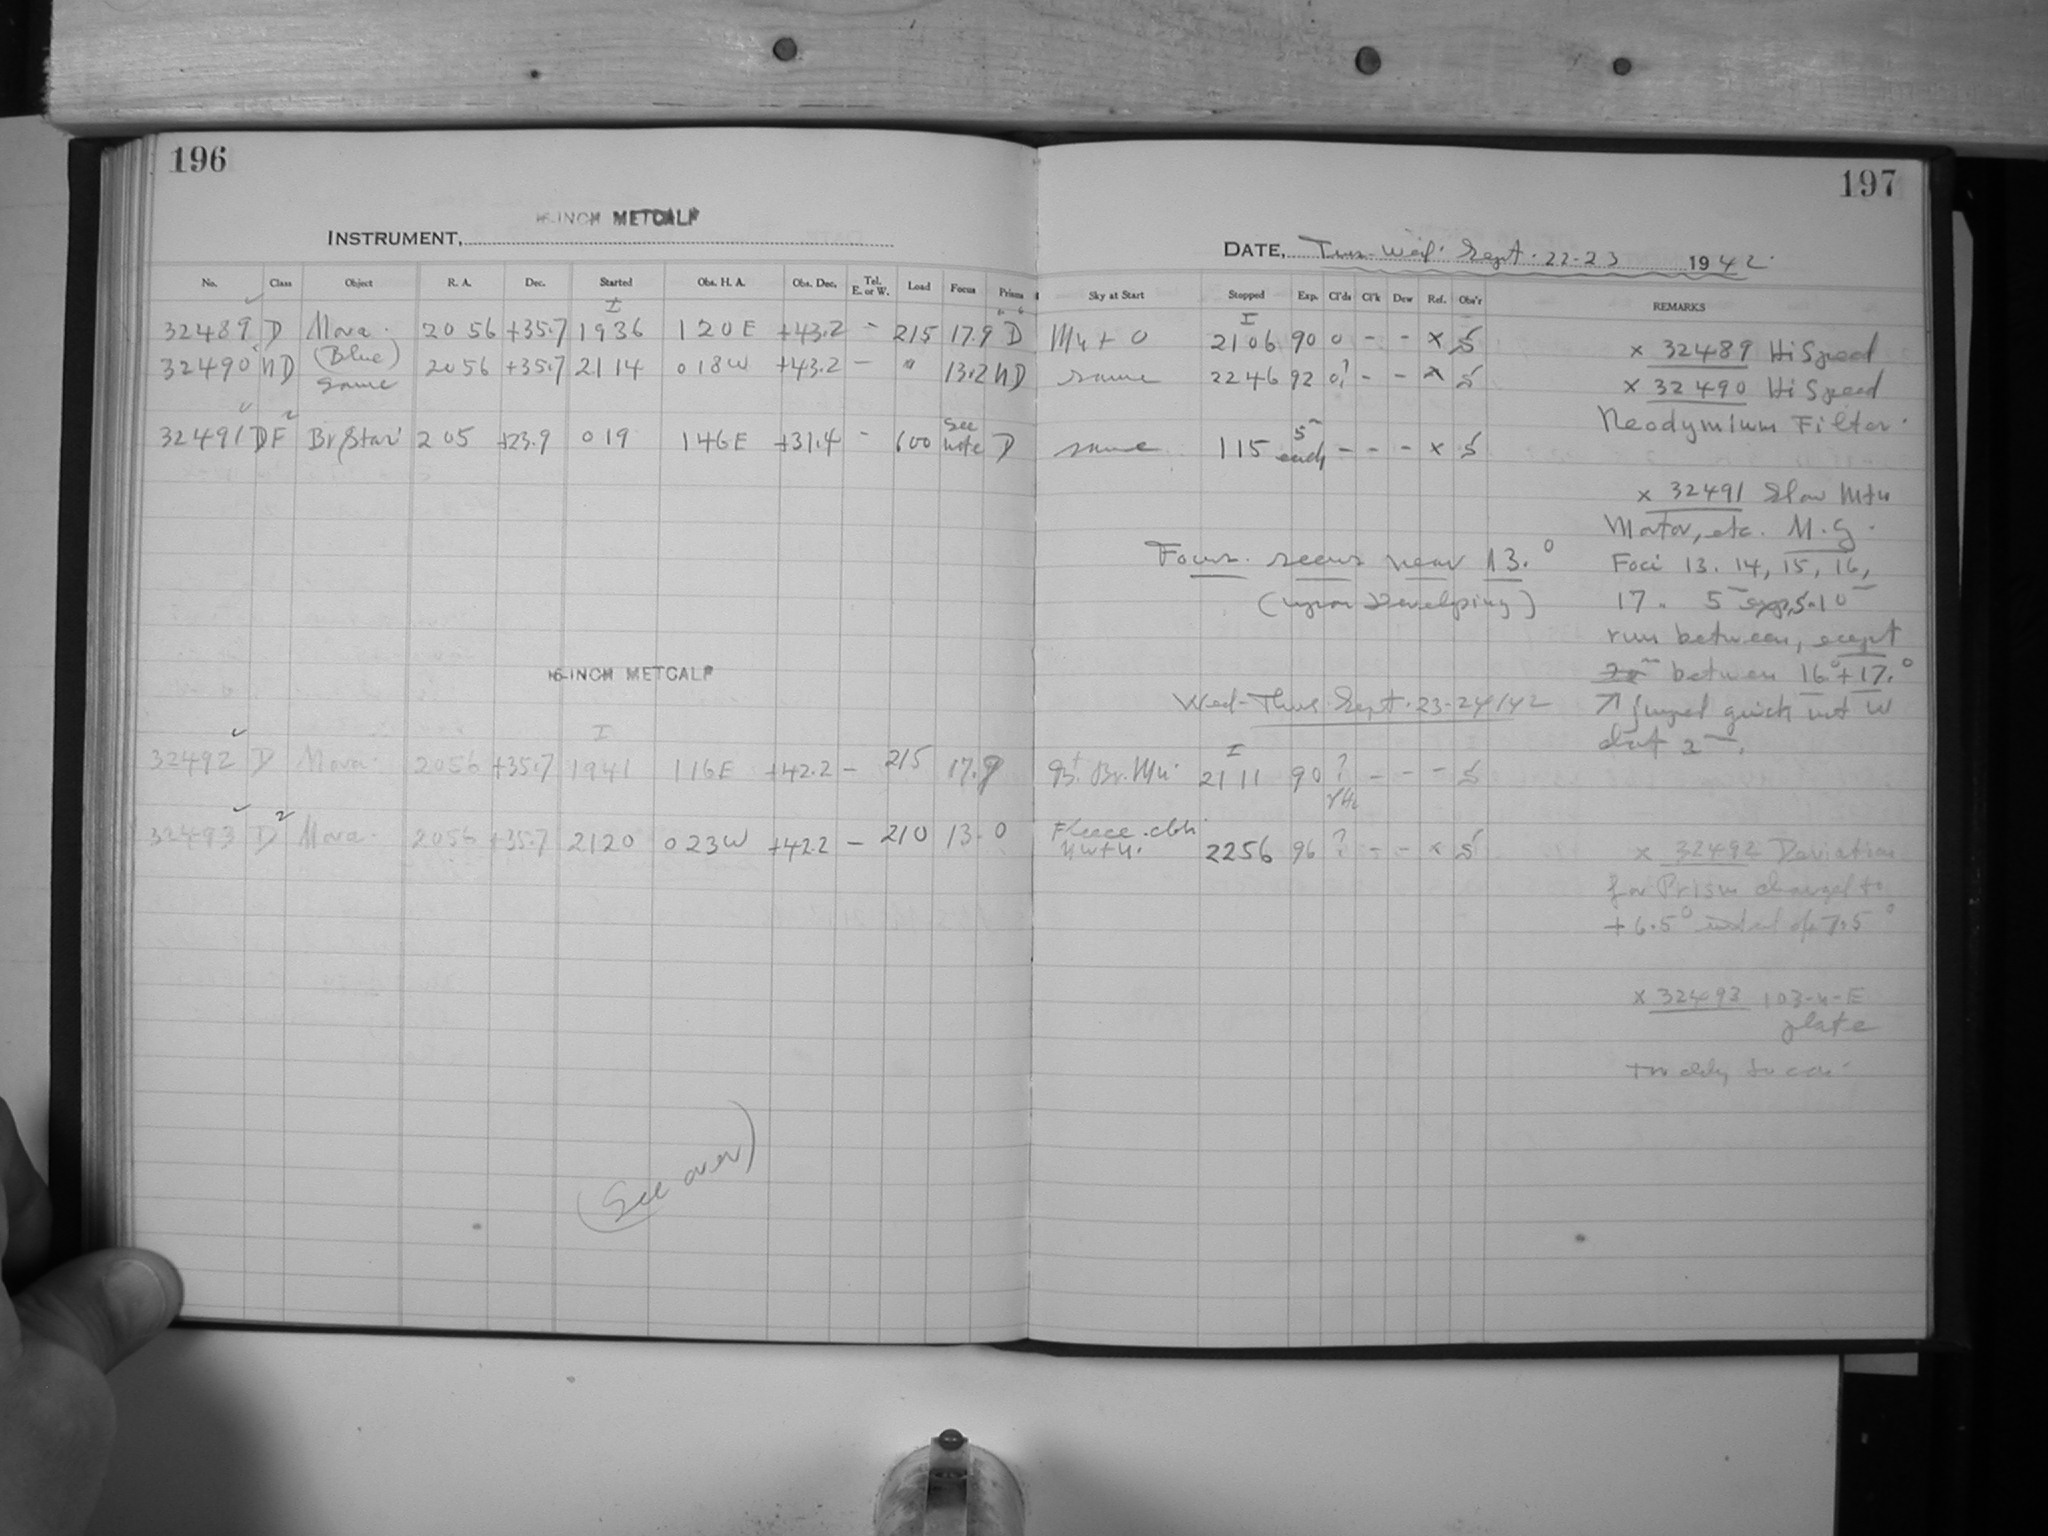 196
16-INCH METCALF
INSTRUMENT,
No. Class Object R. A. Dec. Started Obs. H. A. Obs. Dec. Tel. E. or W. Load Focus Prisms
I
32489 D Nova. 2056 +35.7 1936 120E +43.2 - 215 17.9 D
(Blue)
32490 ND same 2056 +35.7 2114 018W +43.2 - " 13.2 ND
32491 DF Br. Star 205 +23.9 019 146E +31.4 - 600 see note D
16-INCH METCALF
I
32492 D Nova. 2056 +35.7 1941 116E +42.2 - 215 17.9
32493 D2 Nova. 2056 +35.7 2120 023W +42.2 - 210 13.0
(See over)
197
DATE, Tues-Wed. Sept. 22-23 1942.
Sky at Start Stopped Exp. Cl'ds Cl'k Dew Ref. Obs'r REMARKS
I
Mn + 0 2106 90 0 - - x S
same 2246 92 0? - - x S
same 115 5m each - - - x S
Focus. seems near 13.°
(upon Developing)
Wed-Thurs. Sept. 23-24/42
I
Br. Mn. 2111 90 ? - - - S
Fleece. clds N W + N. 2256 96 ? - - x S
x 32489 Hi Speed
x 32490 Hi Speed
Neodymium Filter.
x 32491 Slow Mtn
Motor, etc. M.G.
Foci 13. 14, 15, 16,
17. 5m exp, 5.10
run between, except
between 16° + 17.°
↗ jumped quick
2m.
x 32492 Deviation
for Prism changed to
+6.5° instead of 7.5°
x 32493 103-a-E
plate